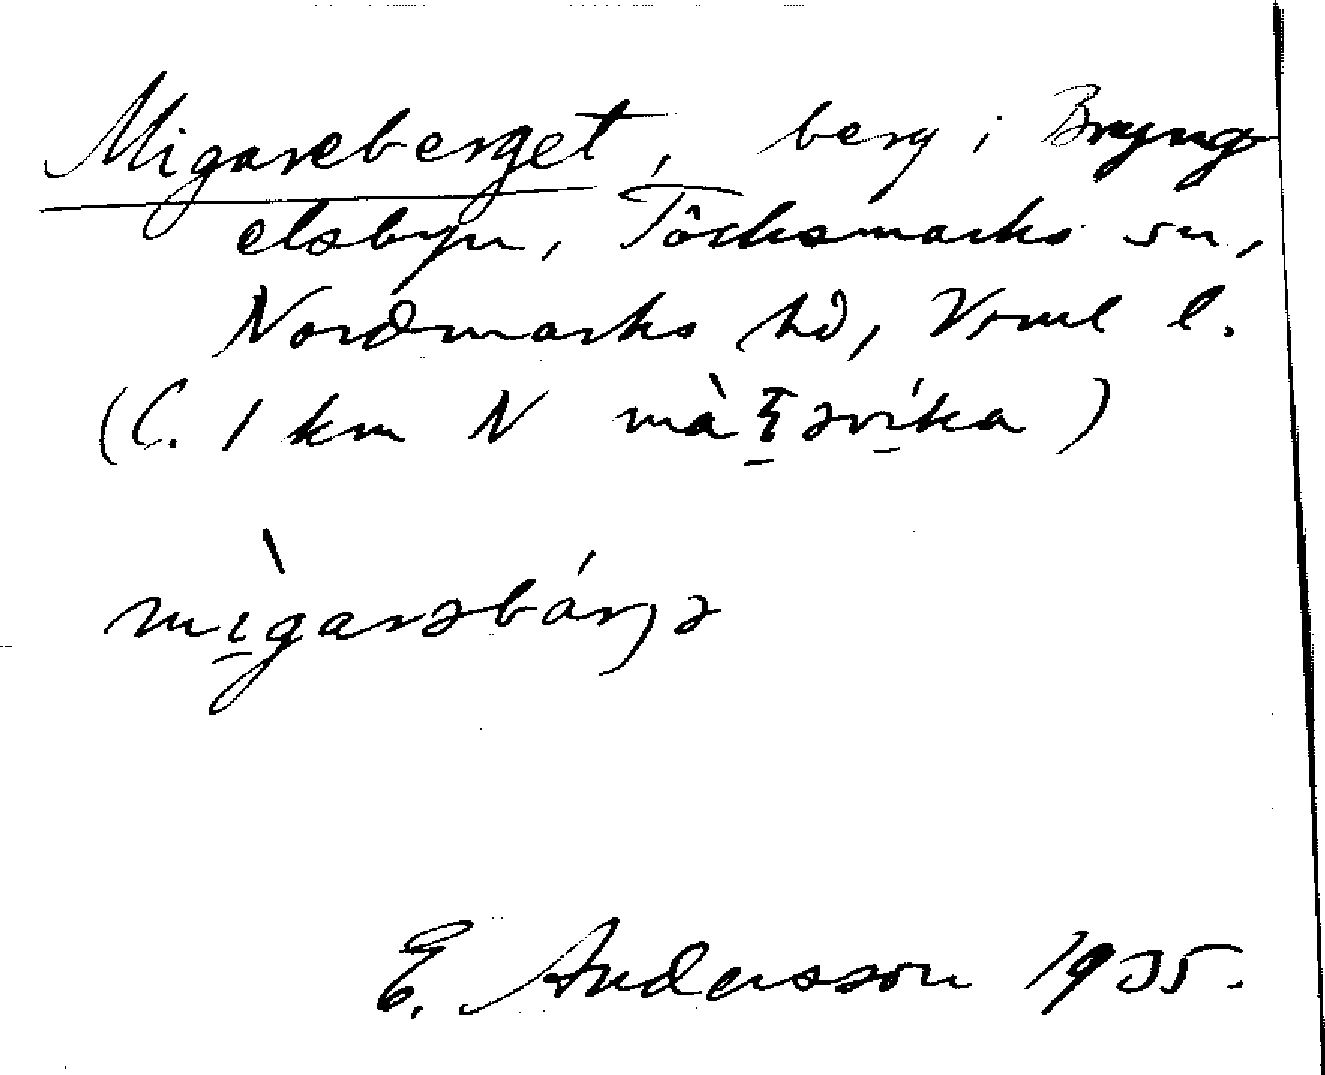 Migareberget, berg i Bryng
elsbyn, Töcksmarks sn,
Nordmarks hd, Vrml l.
(C. 1 km N
mì̱garəbárjə
E. Andersson 1935.